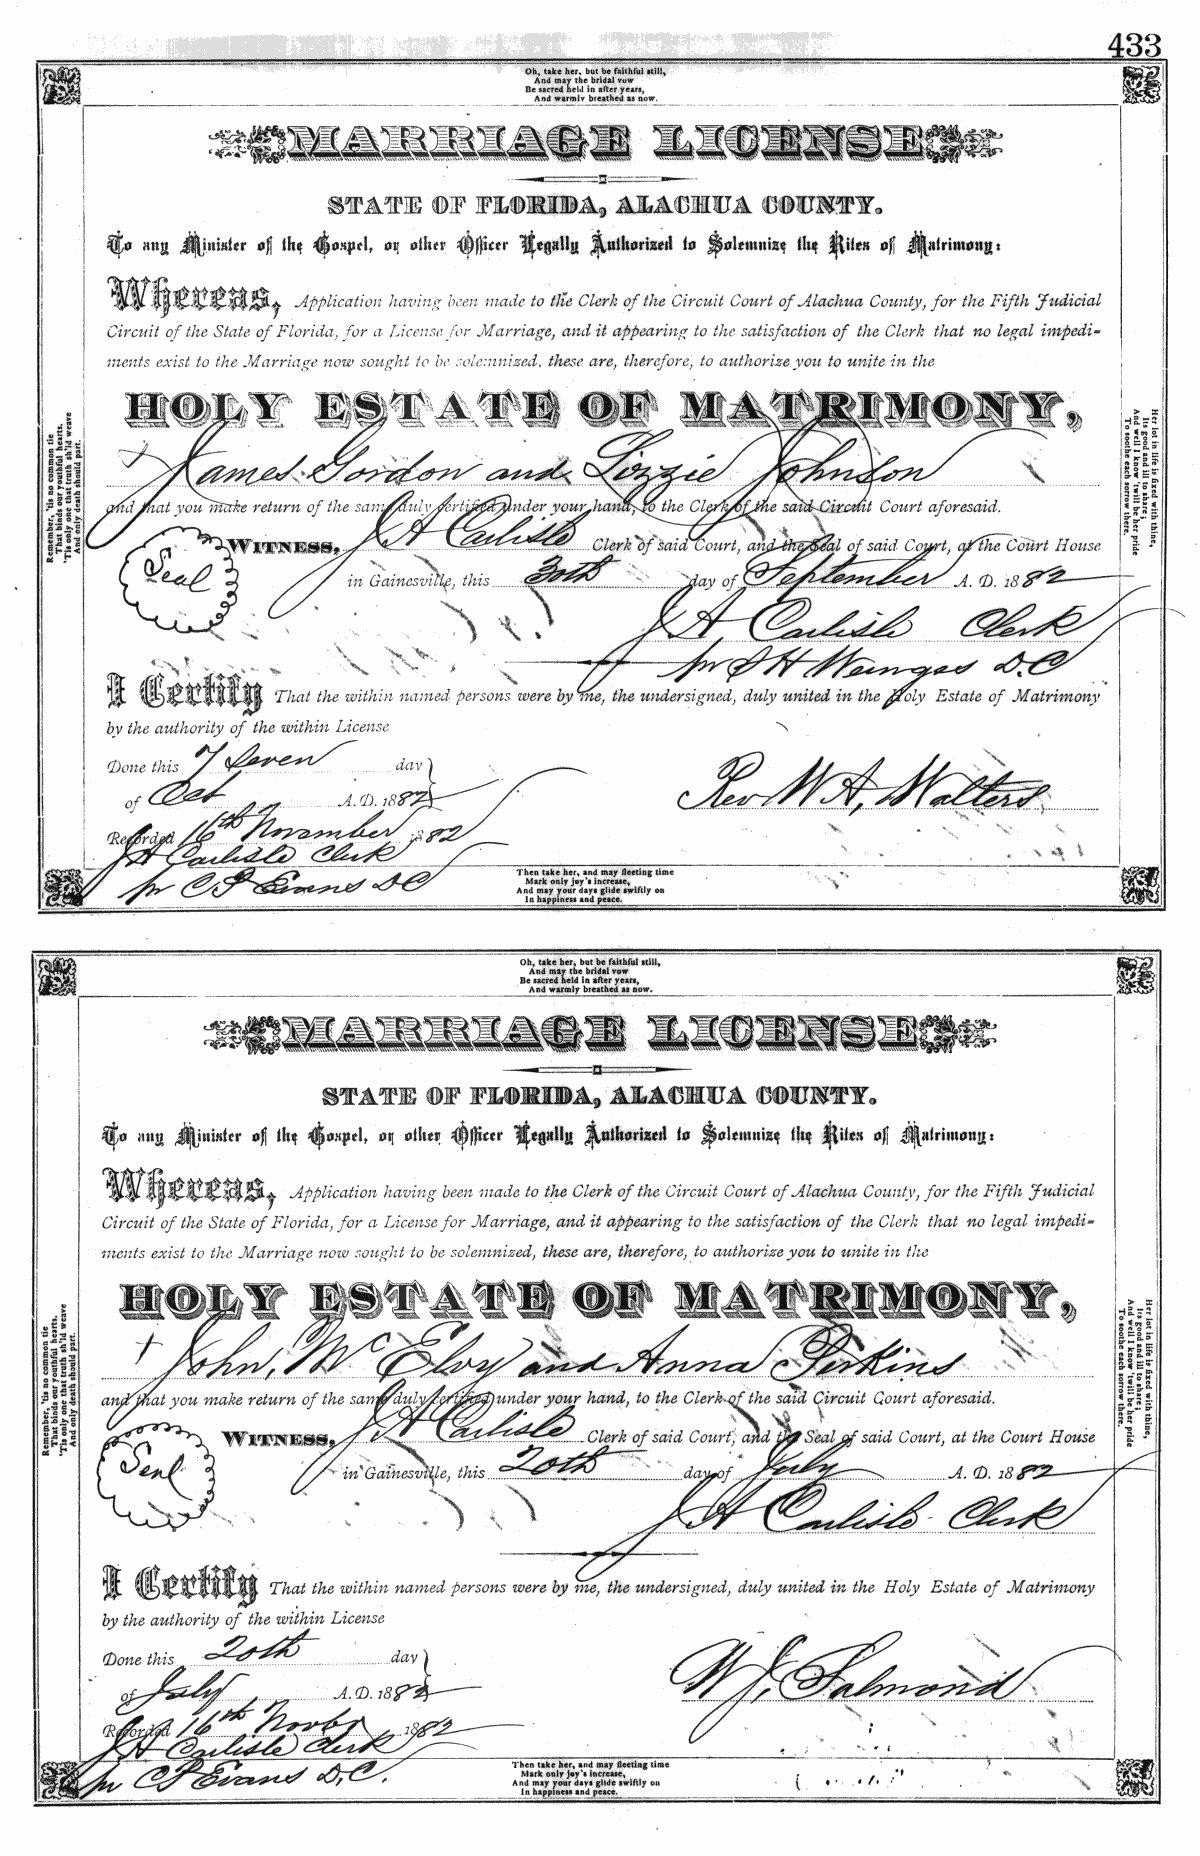 433
Oh, take her, but be faithful still,
And may the bridal vow
Be sacred held in after years,
And warmly breathed as now.
MARRIAGE LICENSE
STATE OF FLORIDA, ALACHUA COUNTY.
To any Minister of the Gospel, or other Officer Legally Authorized to Solemnize the Rites of Matrimony:
Whereas, Application having been made to the Clerk of the Circuit Court of Alachua County, for the Fifth Judicial
Circuit of the State of Florida, for a License for Marriage, and it appearing to the satisfaction of the Clerk that no legal impedi-
ments exist to the Marriage now sought to be solemnized, these are, therefore, to authorize you to unite in the
HOLY ESTATE OF MATRIMONY,
James Gordon and Lizzie Johnson
and that you make return of the same duly certified under your hand, to the Clerk of the said Circuit Court aforesaid.
Seal
WITNESS, J A Carlisle Clerk of said Court, and the Seal of said Court, at the Court House
in Gainesville, this 30th day of September A. D. 1882
J A Carlisle Clerk
pr S H Wienges D.C
I Certify That the within named persons were by me, the undersigned, duly united in the Holy Estate of Matrimony
by the authority of the within License
Done this 7 Seven day
of Oct A. D. 1882
Rev W A, Walters
Recorded 16th November 1882
J A Carlisle Clerk
pr C P Evans DC
Remember, 'tis no common tie
That binds our youthful hearts,
'Tis only one that truth sh'ld weave
And only death should part.
Her lot in life is fixed with thine,
Its good and ill to share;
And well I know 'twill be her pride
To soothe each sorrow there.
Then take her, and may fleeting time
Mark only joy's increase,
And may your days glide swiftly on
In happiness and peace.
Oh, take her, but be faithful still,
And may the bridal vow
Be sacred held in after years,
And warmly breathed as now.
MARRIAGE LICENSE
STATE OF FLORIDA, ALACHUA COUNTY.
To any Minister of the Gospel, or other Officer Legally Authorized to Solemnize the Rites of Matrimony:
Whereas, Application having been made to the Clerk of the Circuit Court of Alachua County, for the Fifth Judicial
Circuit of the State of Florida, for a License for Marriage, and it appearing to the satisfaction of the Clerk that no legal impedi-
ments exist to the Marriage now sought to be solemnized, these are, therefore, to authorize you to unite in the
HOLY ESTATE OF MATRIMONY,
John, Mc Elvy and Anna Perkins
and that you make return of the same duly certified under your hand, to the Clerk of the said Circuit Court aforesaid.
Seal
WITNESS, J A Carlisle Clerk of said Court, and the Seal of said Court, at the Court House
in Gainesville, this 20th day of July A. D. 1882
J A Carlisle Clerk
I Certify That the within named persons were by me, the undersigned, duly united in the Holy Estate of Matrimony
by the authority of the within License
Done this 20th day
of July A. D. 1882
W J, Salmond
Recorded 16th Novbr 1882
J A Carlisle Clerk
pr C P Evans D.C.
Remember, 'tis no common tie
That binds our youthful hearts,
'Tis only one that truth sh'ld weave
And only death should part.
Her lot in life is fixed with thine,
Its good and ill to share;
And well I know 'twill be her pride
To soothe each sorrow there.
Then take her, and may fleeting time
Mark only joy's increase,
And may your days glide swiftly on
In happiness and peace.